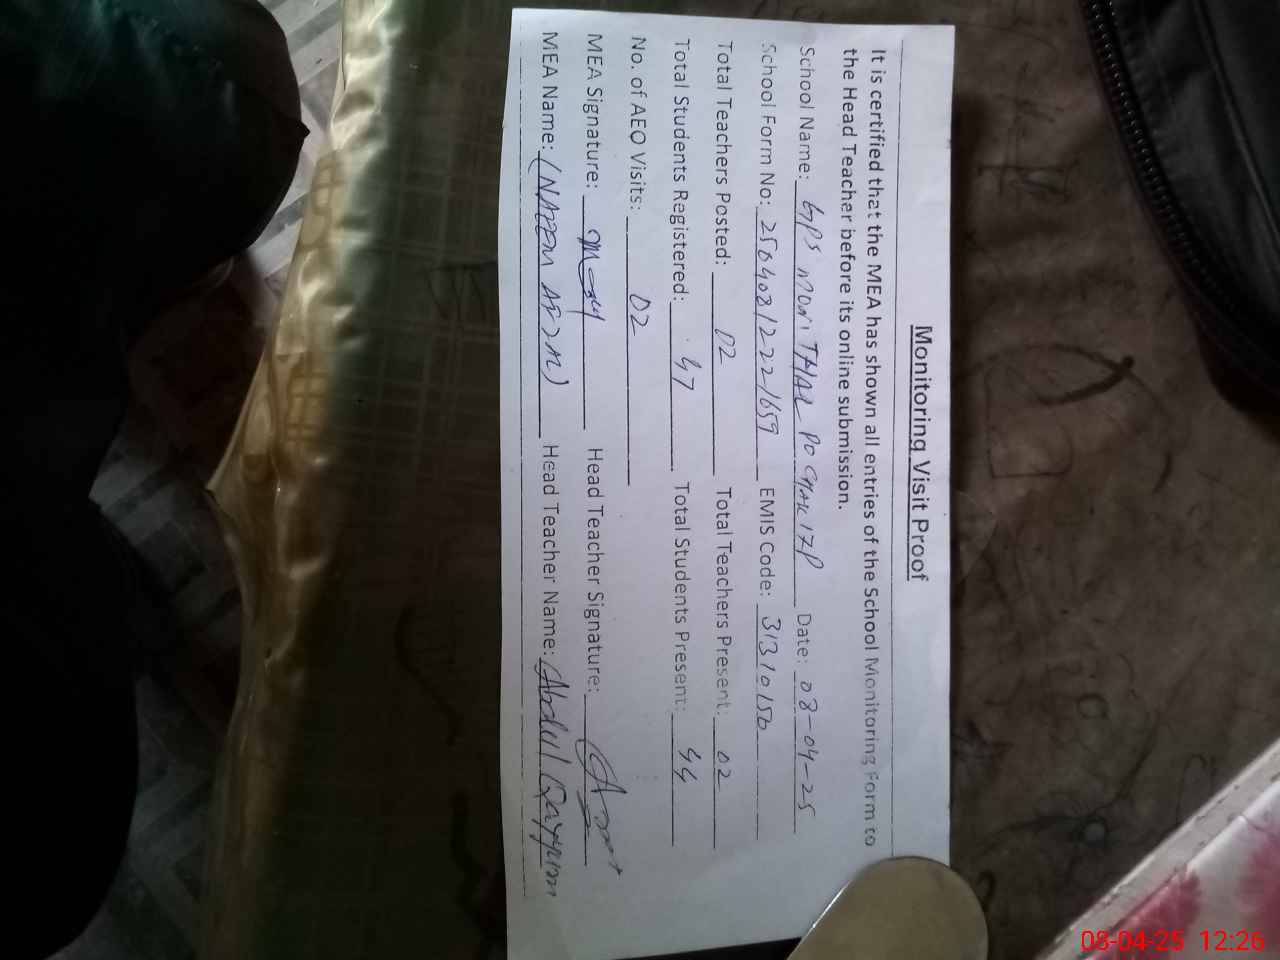 Monitoring Visit Proof
It is certified that the MEA has shown all entries of the School Monitoring Form to
the Head Teacher before its online submission.
School Name: GPS MONI THAL PO CHAK 17P Date: 08-04-25
School Form No: 25040812221659 EMIS Code: 31310156
Total Teachers Posted: 02 Total Teachers Present: 02
Total Students Registered: 47 Total Students Present: 44
No. of AEO Visits: 02
MEA Signature: Head Teacher Signature:
MEA Name: (NAEEM) Head Teacher Name: Abdul Qayyum
08-04-25 12:26